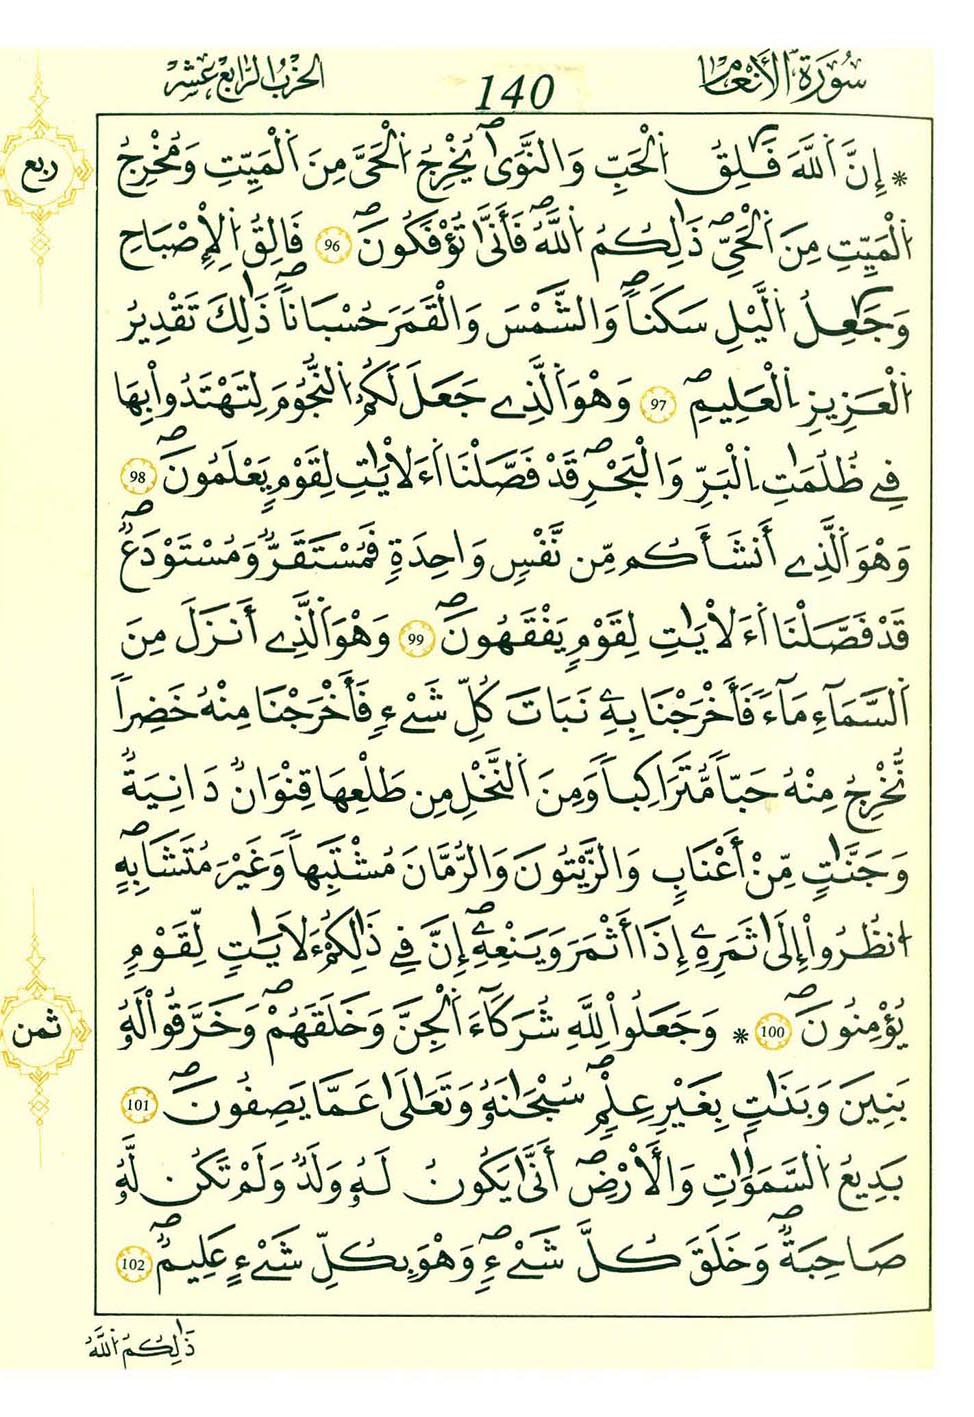 سُورَةُ الأَنْعَامِ
140
الحِزْبُ الرَّابِعَ عَشَرَ
ربع
* إِنَّ اَ۬للَّهَ فَٰلِقُ اُ۬لْحَبِّ وَالنَّوَىٰۖ يُخْرِجُ اُ۬لْحَيَّ مِنَ اَ۬لْمَيِّتِ وَمُخْرِجُ
اُ۬لْمَيِّتِ مِنَ اَ۬لْحَيِّۖ ذَٰلِكُمُ اُ۬للَّهُۖ فَأَنَّىٰ تُؤْفَكُونَۖ 96 فَالِقُ اُ۬لْإِصْبَاحِ
وَجَٰعِلُ اُ۬ليْلِ سَكَناٗۖ وَالشَّمْسَ وَالْقَمَرَ حُسْبَاناٗۖ ذَٰلِكَ تَقْدِيرُ
اُ۬لْعَزِيزِ اِ۬لْعَلِيمِۖ 97 وَهْوَ اَ۬لَّذِے جَعَلَ لَكُمُ اُ۬لنُّجُومَ لِتَهْتَدُواْ بِهَا
فِے ظُلُمَٰتِ اِ۬لْبَرِّ وَالْبَحْرِۖ قَدْ فَصَّلْنَا اَ۬ءَلْأيَٰتِ لِقَوْمٖ يَعْلَمُونَۖ 98
وَهْوَ اَ۬لَّذِے أَنشَأَكُم مِّن نَّفْسٖ وَاحِدَةٖ فَمُسْتَقَرّٞ وَمُسْتَوْدَعٞۖ
قَدْ فَصَّلْنَا اَ۬ءَلْأيَٰتِ لِقَوْمٖ يَفْقَهُونَۖ 99 وَهْوَ اَ۬لَّذِے أَنزَلَ مِنَ
اَ۬لسَّمَآءِ مَآءٗ فَأَخْرَجْنَا بِهِۦ نَبَاتَ كُلِّ شَےْءٖ فَأَخْرَجْنَا مِنْهُ خَضِراٗ
نُّخْرِجُ مِنْهُ حَبّاٗ مُّتَرَاكِباٗ وَمِنَ اَ۬لنَّخْلِ مِن طَلْعِهَا قِنْوَانٞ دَانِيَةٞ
وَجَنَّٰتٖ مِّنْ أَعْنَابٖ وَالزَّيْتُونَ وَالرُّمَّانَ مُشْتَبِهاٗ وَغَيْرَ مُتَشَٰبِهٍۖ
اُ۟نظُرُواْ إِلَىٰ ثَمَرِهِۦ إِذَا أَثْمَرَ وَيَنْعِهِۦۖ إِنَّ فِے ذَٰلِكُمْ ءَلَأيَٰتٖ لِّقَوْمٖ
يُؤْمِنُونَۖ 100 * وَجَعَلُواْ لِلهِ شُرَكَآءَ اَ۬لْجِنَّ وَخَلَقَهُمْۖ وَخَرَّقُواْ لَهُۥ
ثمن
بَنِينَ وَبَنَٰتٍ بِغَيْرِ عِلْمٖۖ سُبْحَٰنَهُۥ وَتَعَٰلَىٰ عَمَّا يَصِفُونَۖ 101
بَدِيعُ اُ۬لسَّمَٰوَٰتِ وَالْأَرْضِۖ أَنَّىٰ يَكُونُ لَهُۥ وَلَدٞ وَلَمْ تَكُن لَّهُۥ
صَاحِبَةٞۖ وَخَلَقَ كُلَّ شَےْءٖۖ وَهْوَ بِكُلِّ شَےْءٍ عَلِيمٞۖ 102
ذَٰلِكُمُ اُ۬للَّهُ